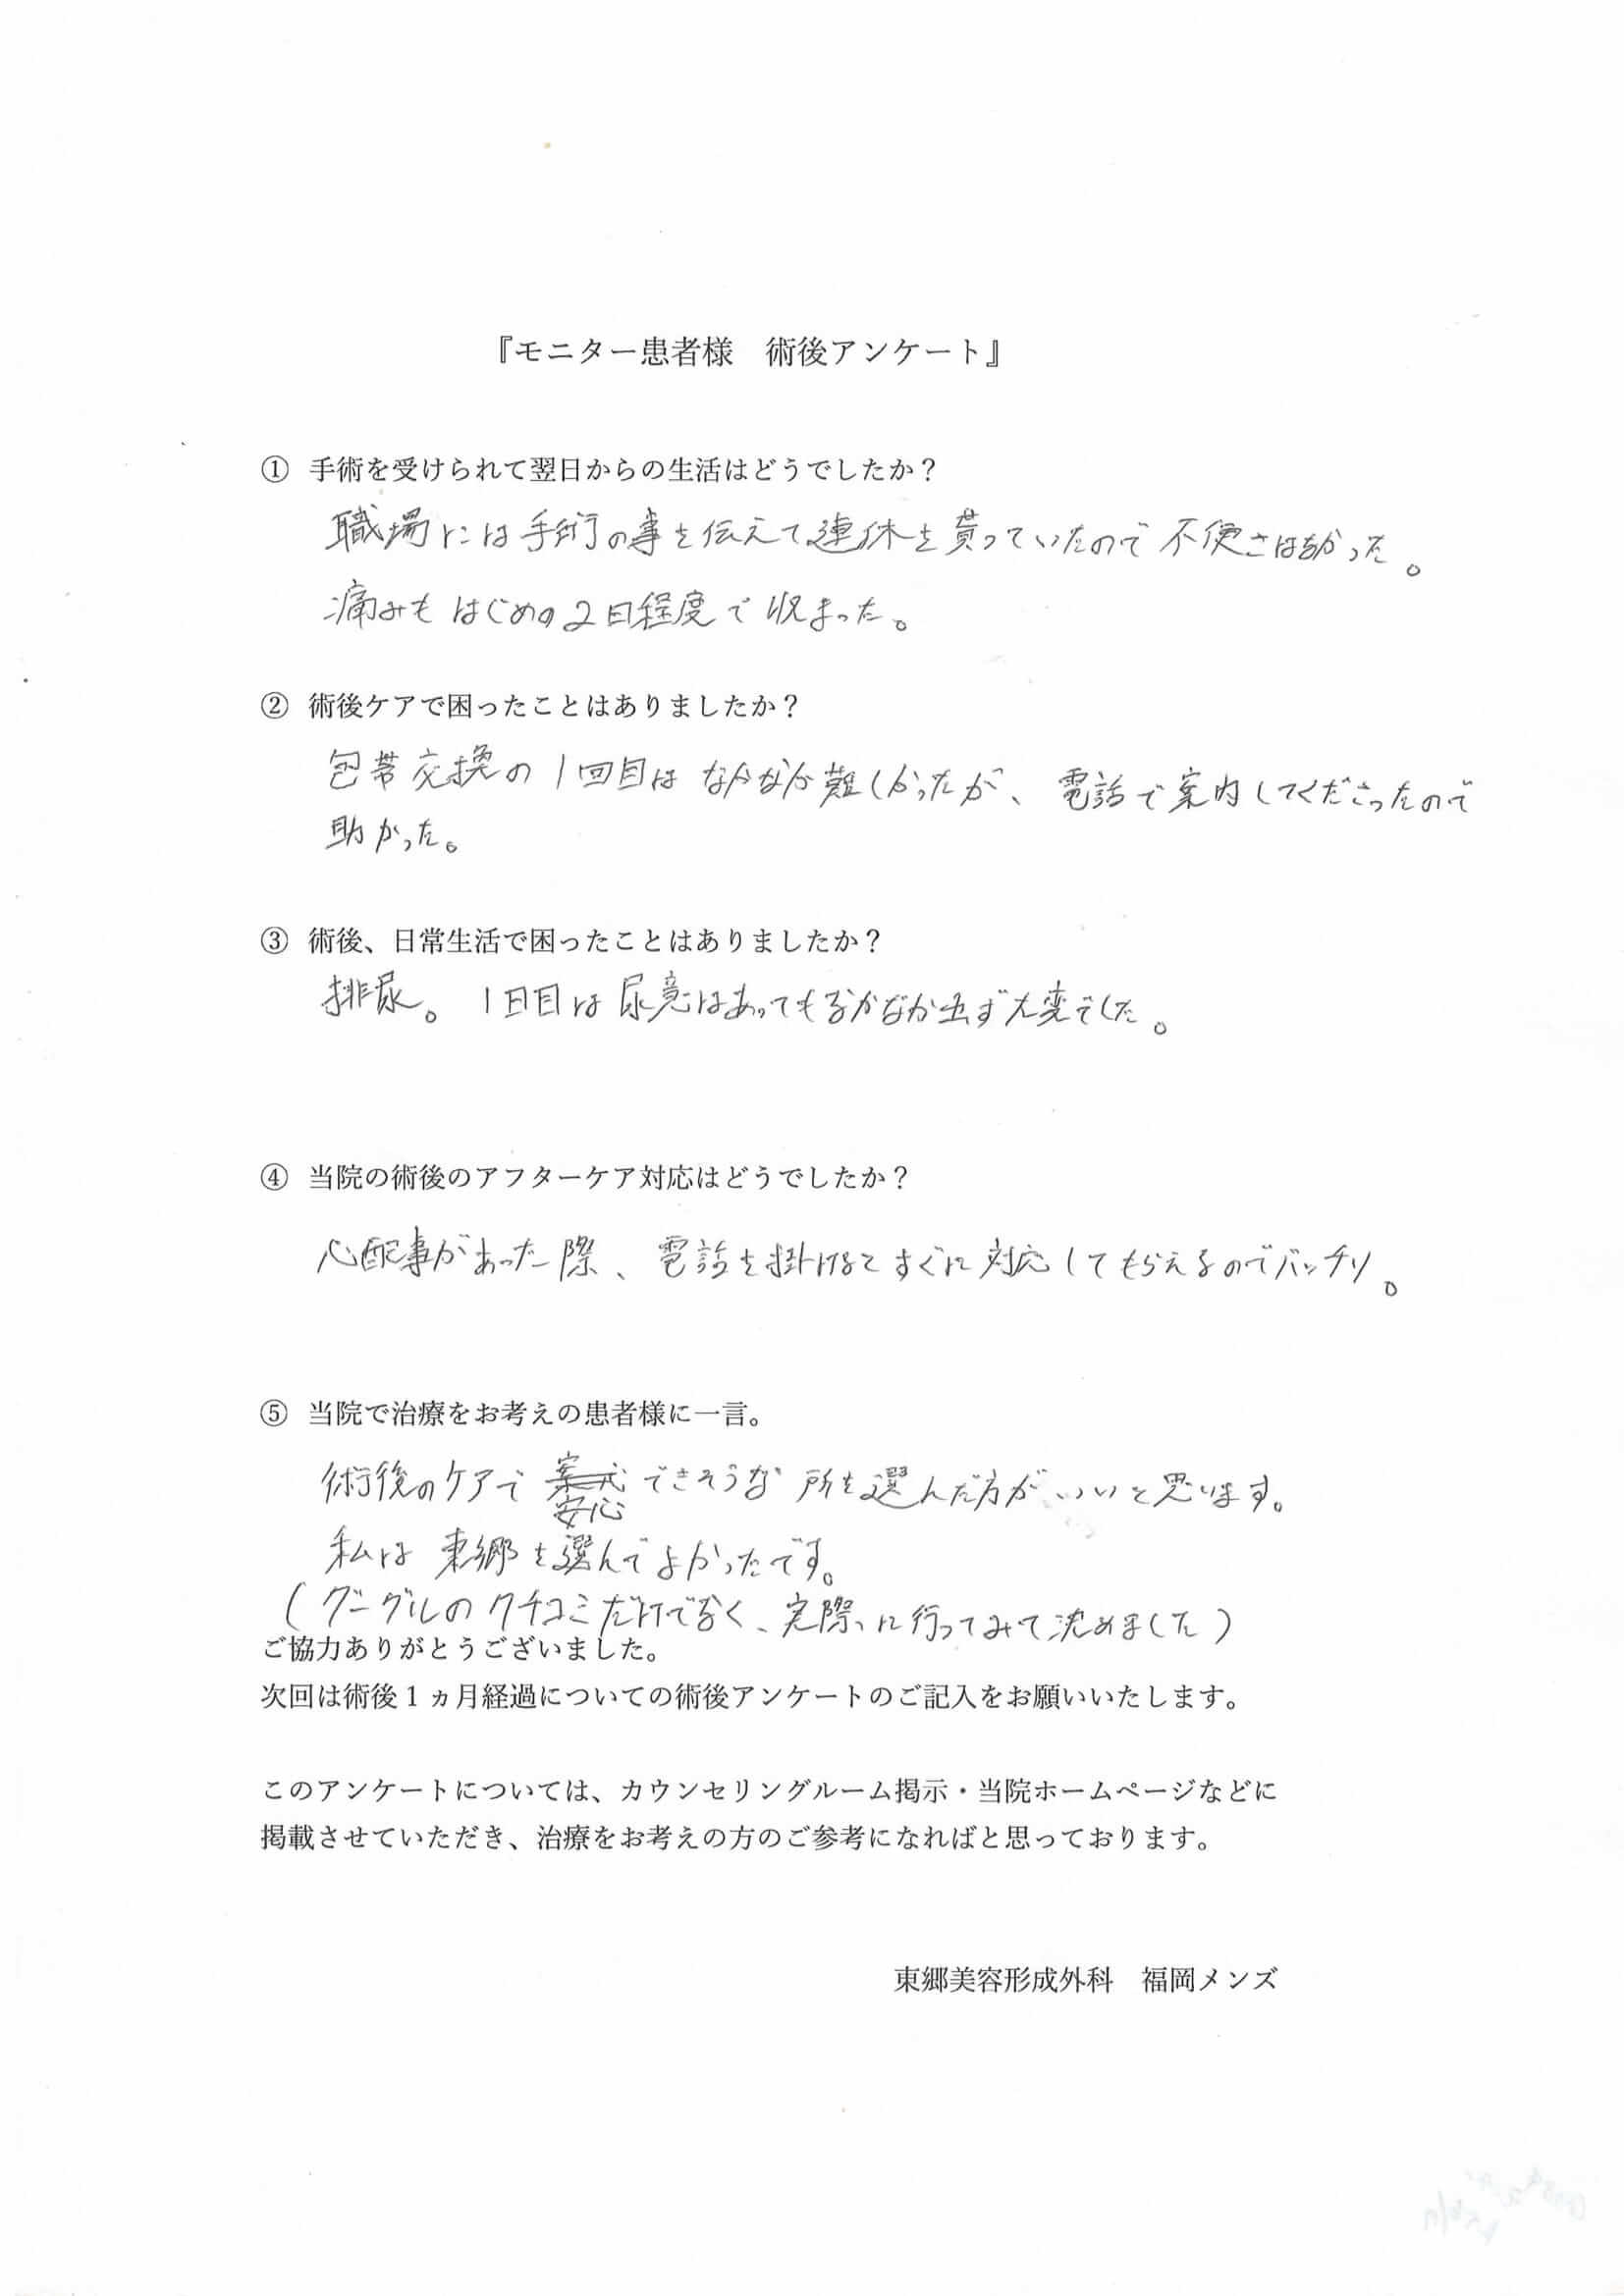 『モニター患者様　術後アンケート』
① 手術を受けられて翌日からの生活はどうでしたか？
職場には手術の事を伝えて連休を貰っていたので不便さはなかった。
痛みもはじめの2日程度で収まった。
② 術後ケアで困ったことはありましたか？
包帯交換の1回目はなかなか難しかったが、電話で案内してくださったので
助かった。
③ 術後、日常生活で困ったことはありましたか？
排尿。1日目は尿意はあってもなかなか出ず大変でした。
④ 当院の術後のアフターケア対応はどうでしたか？
心配事があった際、電話を掛けるとすぐに対応してもらえるのでバッチリ。
⑤ 当院で治療をお考えの患者様に一言。
術後のケアで安心できそうな所を選んだ方がいいと思います。
私は東郷を選んでよかったです。
（グーグルのクチコミだけでなく、実際に行ってみて決めました）
ご協力ありがとうございました。
次回は術後１ヵ月経過についての術後アンケートのご記入をお願いいたします。
このアンケートについては、カウンセリングルーム掲示・当院ホームページなどに
掲載させていただき、治療をお考えの方のご参考になればと思っております。
東郷美容形成外科　福岡メンズ